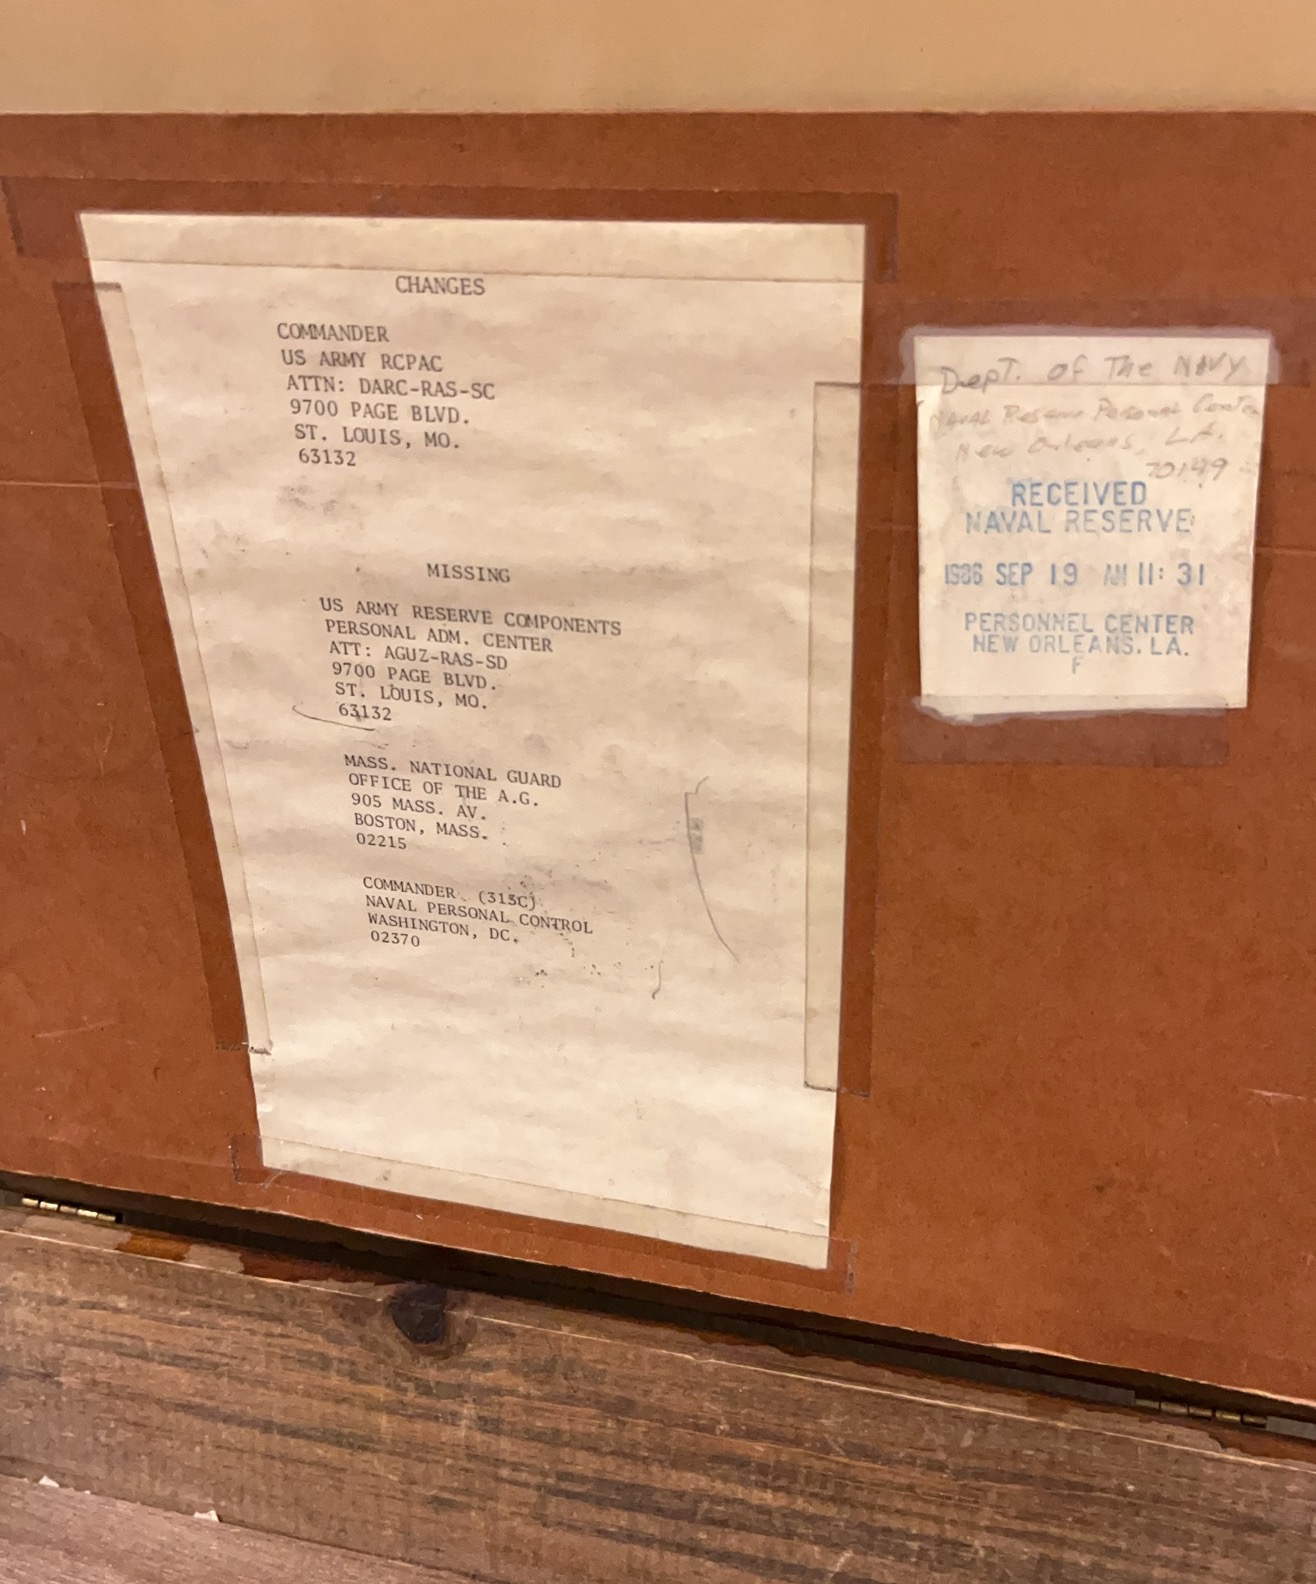 CHANGES
COMMANDER
US ARMY RCPAC
ATTN: DARC-RAS-SC
9700 PAGE BLVD.
ST. LOUIS, MO.
63132
MISSING
US ARMY RESERVE COMPONENTS
PERSONAL ADM. CENTER
ATT: AGUZ-RAS-SD
9700 PAGE BLVD.
ST. LOUIS, MO.
63132
MASS. NATIONAL GUARD
OFFICE OF THE A.G.
905 MASS. AV.
BOSTON, MASS.
02215
COMMANDER (313C)
NAVAL PERSONAL CONTROL
WASHINGTON, DC.
02370
Dept. of The NAVY
Naval Reserve Personal Center
New Orleans, LA.
70149
RECEIVED
NAVAL RESERVE
1986 SEP 19 AM 11:31
PERSONNEL CENTER
NEW ORLEANS. LA.
F